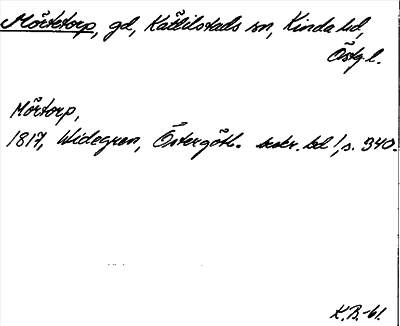 Mörtetorp, gd, Kättilstads sn, Kinda hd,
Östg l.
Mörtorp,
1817, Widegren, Östergötl. beskr. bd 1, s. 340.
K.B.-61.